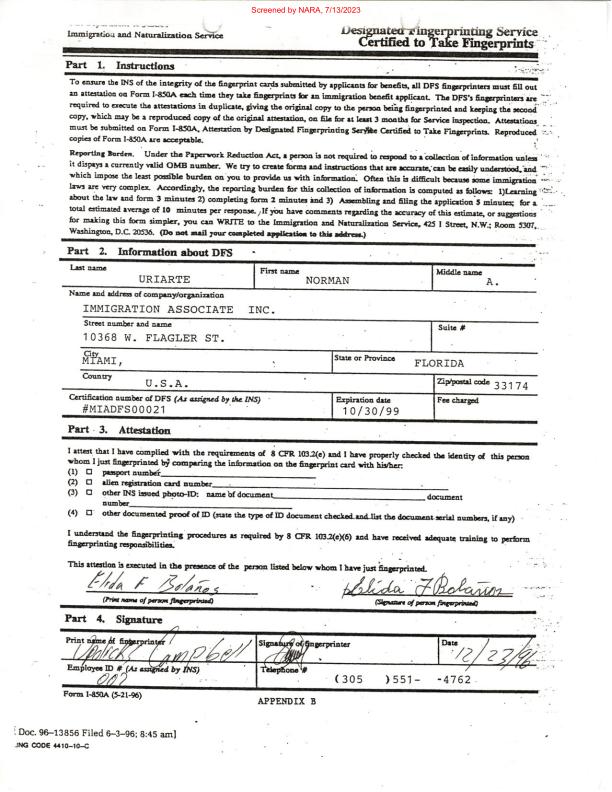 Screened by NARA, 7/13/2023
Immigration and Naturalization Service
Designated Fingerprinting Service
Certified to Take Fingerprints
Part 1. Instructions
To ensure the INS of the integrity of the fingerprint cards submitted by applicants for benefits, all DFS fingerprinters must fill out
an attestation on Form I-850A each time they take fingerprints for an immigration benefit applicant. The DFS's fingerprinters are
required to execute the attestations in duplicate, giving the original copy to the person being fingerprinted and keeping the second
copy, which may be a reproduced copy of the original attestation, on file for at least 3 months for Service inspection. Attestations
must be submitted on Form I-850A, Attestation by Designated Fingerprinting Service Certified to Take Fingerprints. Reproduced
copies of Form I-850A are acceptable.
Reporting Burden. Under the Paperwork Reduction Act, a person is not required to respond to a collection of information unless
it dispays a currently valid OMB number. We try to create forms and instructions that are accurate, can be easily understood, and
which impose the least possible burden on you to provide us with information. Often this is difficult because some immigration
laws are very complex. Accordingly, the reporting burden for this collection of information is computed as follows: 1)Learning
about the law and form 3 minutes 2) completing form 2 minutes and 3) Assembling and filing the application 5 minutes; for a
total estimated average of 10 minutes per response. If you have comments regarding the accuracy of this estimate, or suggestions
for making this form simpler, you can WRITE to the Immigration and Naturalization Service, 425 I Street, N.W.; Room 5307,
Washington, D.C. 20536. (Do not mail your completed application to this address.)
Part 2. Information about DFS
Last name First name Middle name
URIARTE NORMAN A.
Name and address of company/organization
IMMIGRATION ASSOCIATE INC.
Street number and name Suite #
10368 W. FLAGLER ST.
City State or Province FLORIDA
MIAMI,
Country Zip/postal code 33174
U.S.A.
Certification number of DFS (As assigned by the INS) Expiration date Fee charged
#MIADFS00021 10/30/99
Part 3. Attestation
I attest that I have complied with the requirements of 8 CFR 103.2(e) and I have properly checked the identity of this person
whom I just fingerprinted by comparing the information on the fingerprint card with his/her:
(1) passport number
(2) alien registration card number
(3) other INS issued photo-ID: name of document document
number
(4) other documented proof of ID (state the type of ID document checked and list the document serial numbers, if any)
I understand the fingerprinting procedures as required by 8 CFR 103.2(e)(6) and have received adequate training to perform
fingerprinting responsibilities.
This attestion is executed in the presence of the person listed below whom I have just fingerprinted.
Elida F Bolaños Elida F Bolaños
(Print name of person fingerprinted) (Signature of person fingerprinted)
Part 4. Signature
Print name of fingerprinter Signature of fingerprinter Date
Campbell 12/23/96
Employee ID # (As assigned by INS) Telephone #
007 (305 )551- -4762
Form I-850A (5-21-96)
APPENDIX B
Doc. 96-13856 Filed 6-3-96; 8:45 am]
ING CODE 4410-10-C